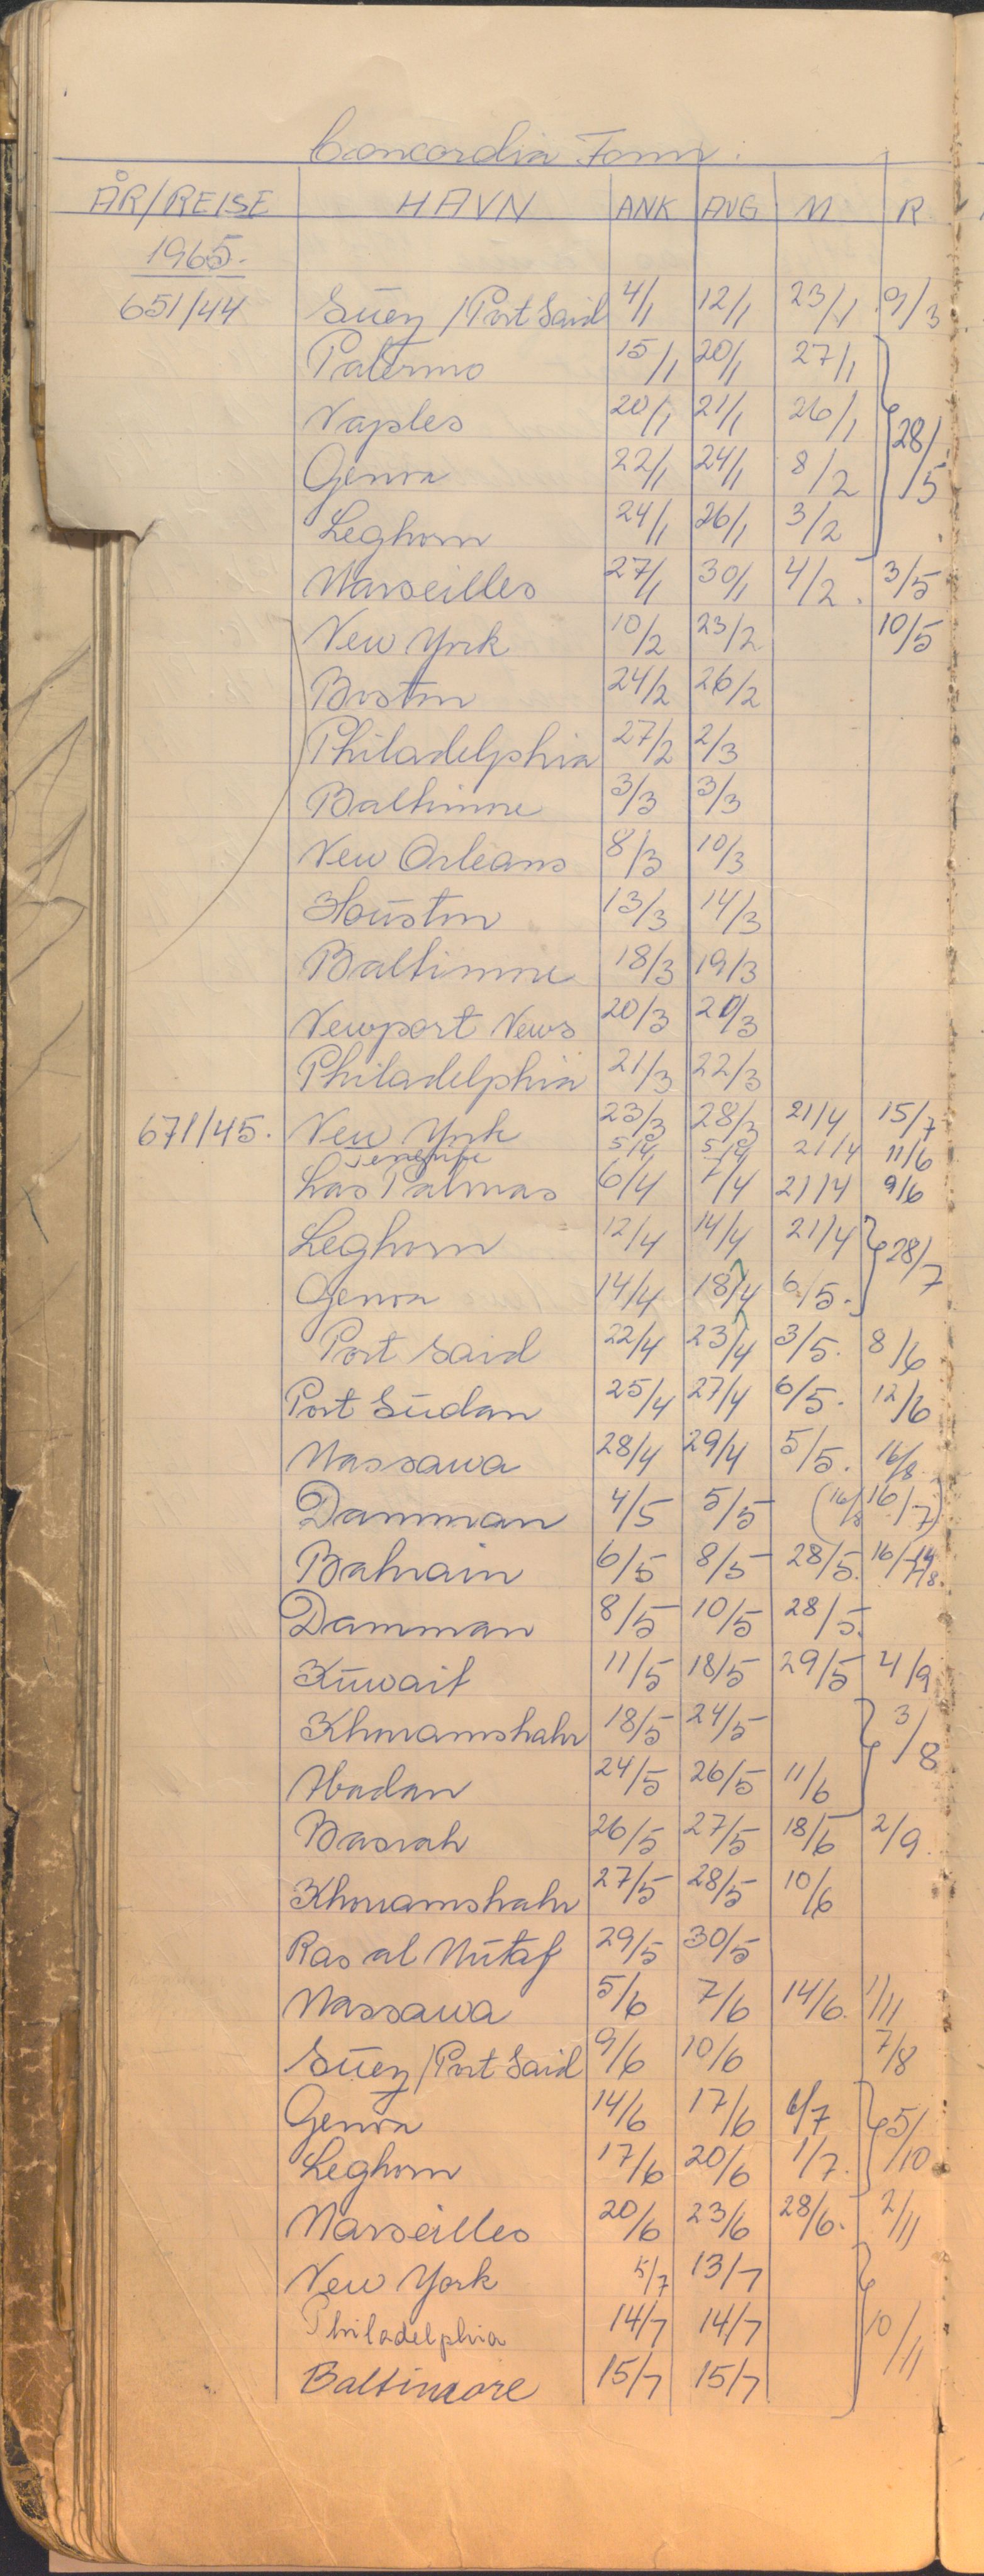 Concordia Fonn.
ÅR/REISE HAVN ANK AVG M R
1965.
651/44 Suez/Port Said 4/1 12/1 23/1 9/3
Palermo 15/1 20/1 27/1
Naples 20/1 21/1 26/1
28/5
Genoa 22/1 24/1 8/2
Leghorn 24/1 26/1 3/2
Marseilles 27/1 30/1 4/2. 3/5
New York 10/2 23/2 10/5
Boston 24/2 26/2
Philadelphia 27/2 2/3
Baltimore 3/3 3/3
New Orleans 8/3 10/3
Houston 13/3 14/3
Baltimore 18/3 19/3
Newport News 20/3 20/3
Philadelphia 21/3 22/3
671/45. New York 23/3 28/3 21/4 15/7
Tenerife 5/4 5/4 21/4 11/6
Las Palmas 6/4 7/4 21/4 9/6
Leghorn 12/4 14/4 21/4 28/7
Genoa 14/4 18/4 6/5.
Port Said 22/4 23/4 3/5. 8/6
Port Sudan 25/4 27/4 6/5. 12/6
Massawa 28/4 29/4 5/5. 16/8
Damman 4/5 5/5 (16/8 16/7)
Bahrain 6/5 8/5 28/5. 16/7 -14/8.
Damman 8/5 10/5 28/5.
Kuwait 11/5 18/5 29/5 4/9
Khoramshahr 18/5 24/5 3/8
Abadan 24/5 26/5 11/6
Basrah 26/5 27/5 18/6 2/9.
Khoramshahr 27/5 28/5 10/6
Ras al Mutaf 29/5 30/5
Massawa 5/6 7/6 14/6. 1/11
Suez/Port Said 9/6 10/6 7/8
Genoa 14/6 17/6 6/7 5/10
Leghorn 17/6 20/6 1/7.
Marseilles 20/6 23/6 28/6. 2/11
New York 5/7 13/7
Philadelphia 14/7 14/7 10/11
Baltimore 15/7 15/7